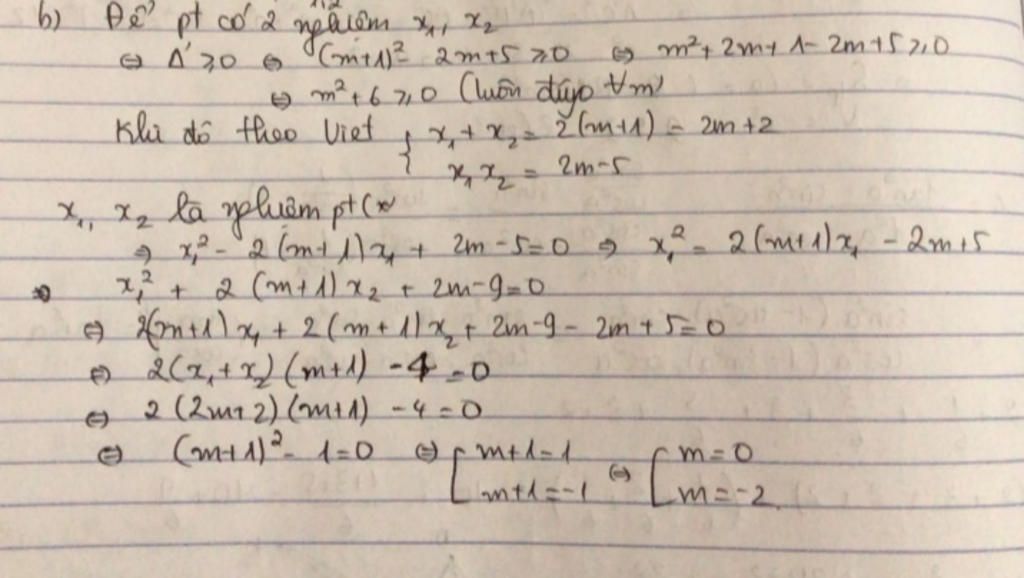 b) Để pt có 2 nghiệm x₁, x₂
⇔ Δ' ≥ 0 ⇔ (m+1)² - 2m+5 ≥ 0 ⇔ m² + 2m + 1 - 2m + 5 ≥ 0
⇔ m² + 6 ≥ 0 (luôn đúng ∀m)
Khi đó theo Viet { x₁ + x₂ = 2(m+1) = 2m+2
x₁x₂ = 2m-5
x₁, x₂ là nghiệm pt (*
⇒ x₁² - 2(m+1)x₁ + 2m-5=0 ⇒ x₁² = 2(m+1)x₁ - 2m+5
⇒ x₁² + 2(m+1)x₂ + 2m-9=0
⇔ 2(m+1)x₁ + 2(m+1)x₂ + 2m-9 - 2m+5=0
⇔ 2(x₁+x₂)(m+1) - 4 = 0
⇔ 2(2m+2)(m+1) - 4 = 0
⇔ (m+1)² - 1 = 0 ⇔ [ m+1=1 ⇔ [ m=0
m+1=-1 m=-2.